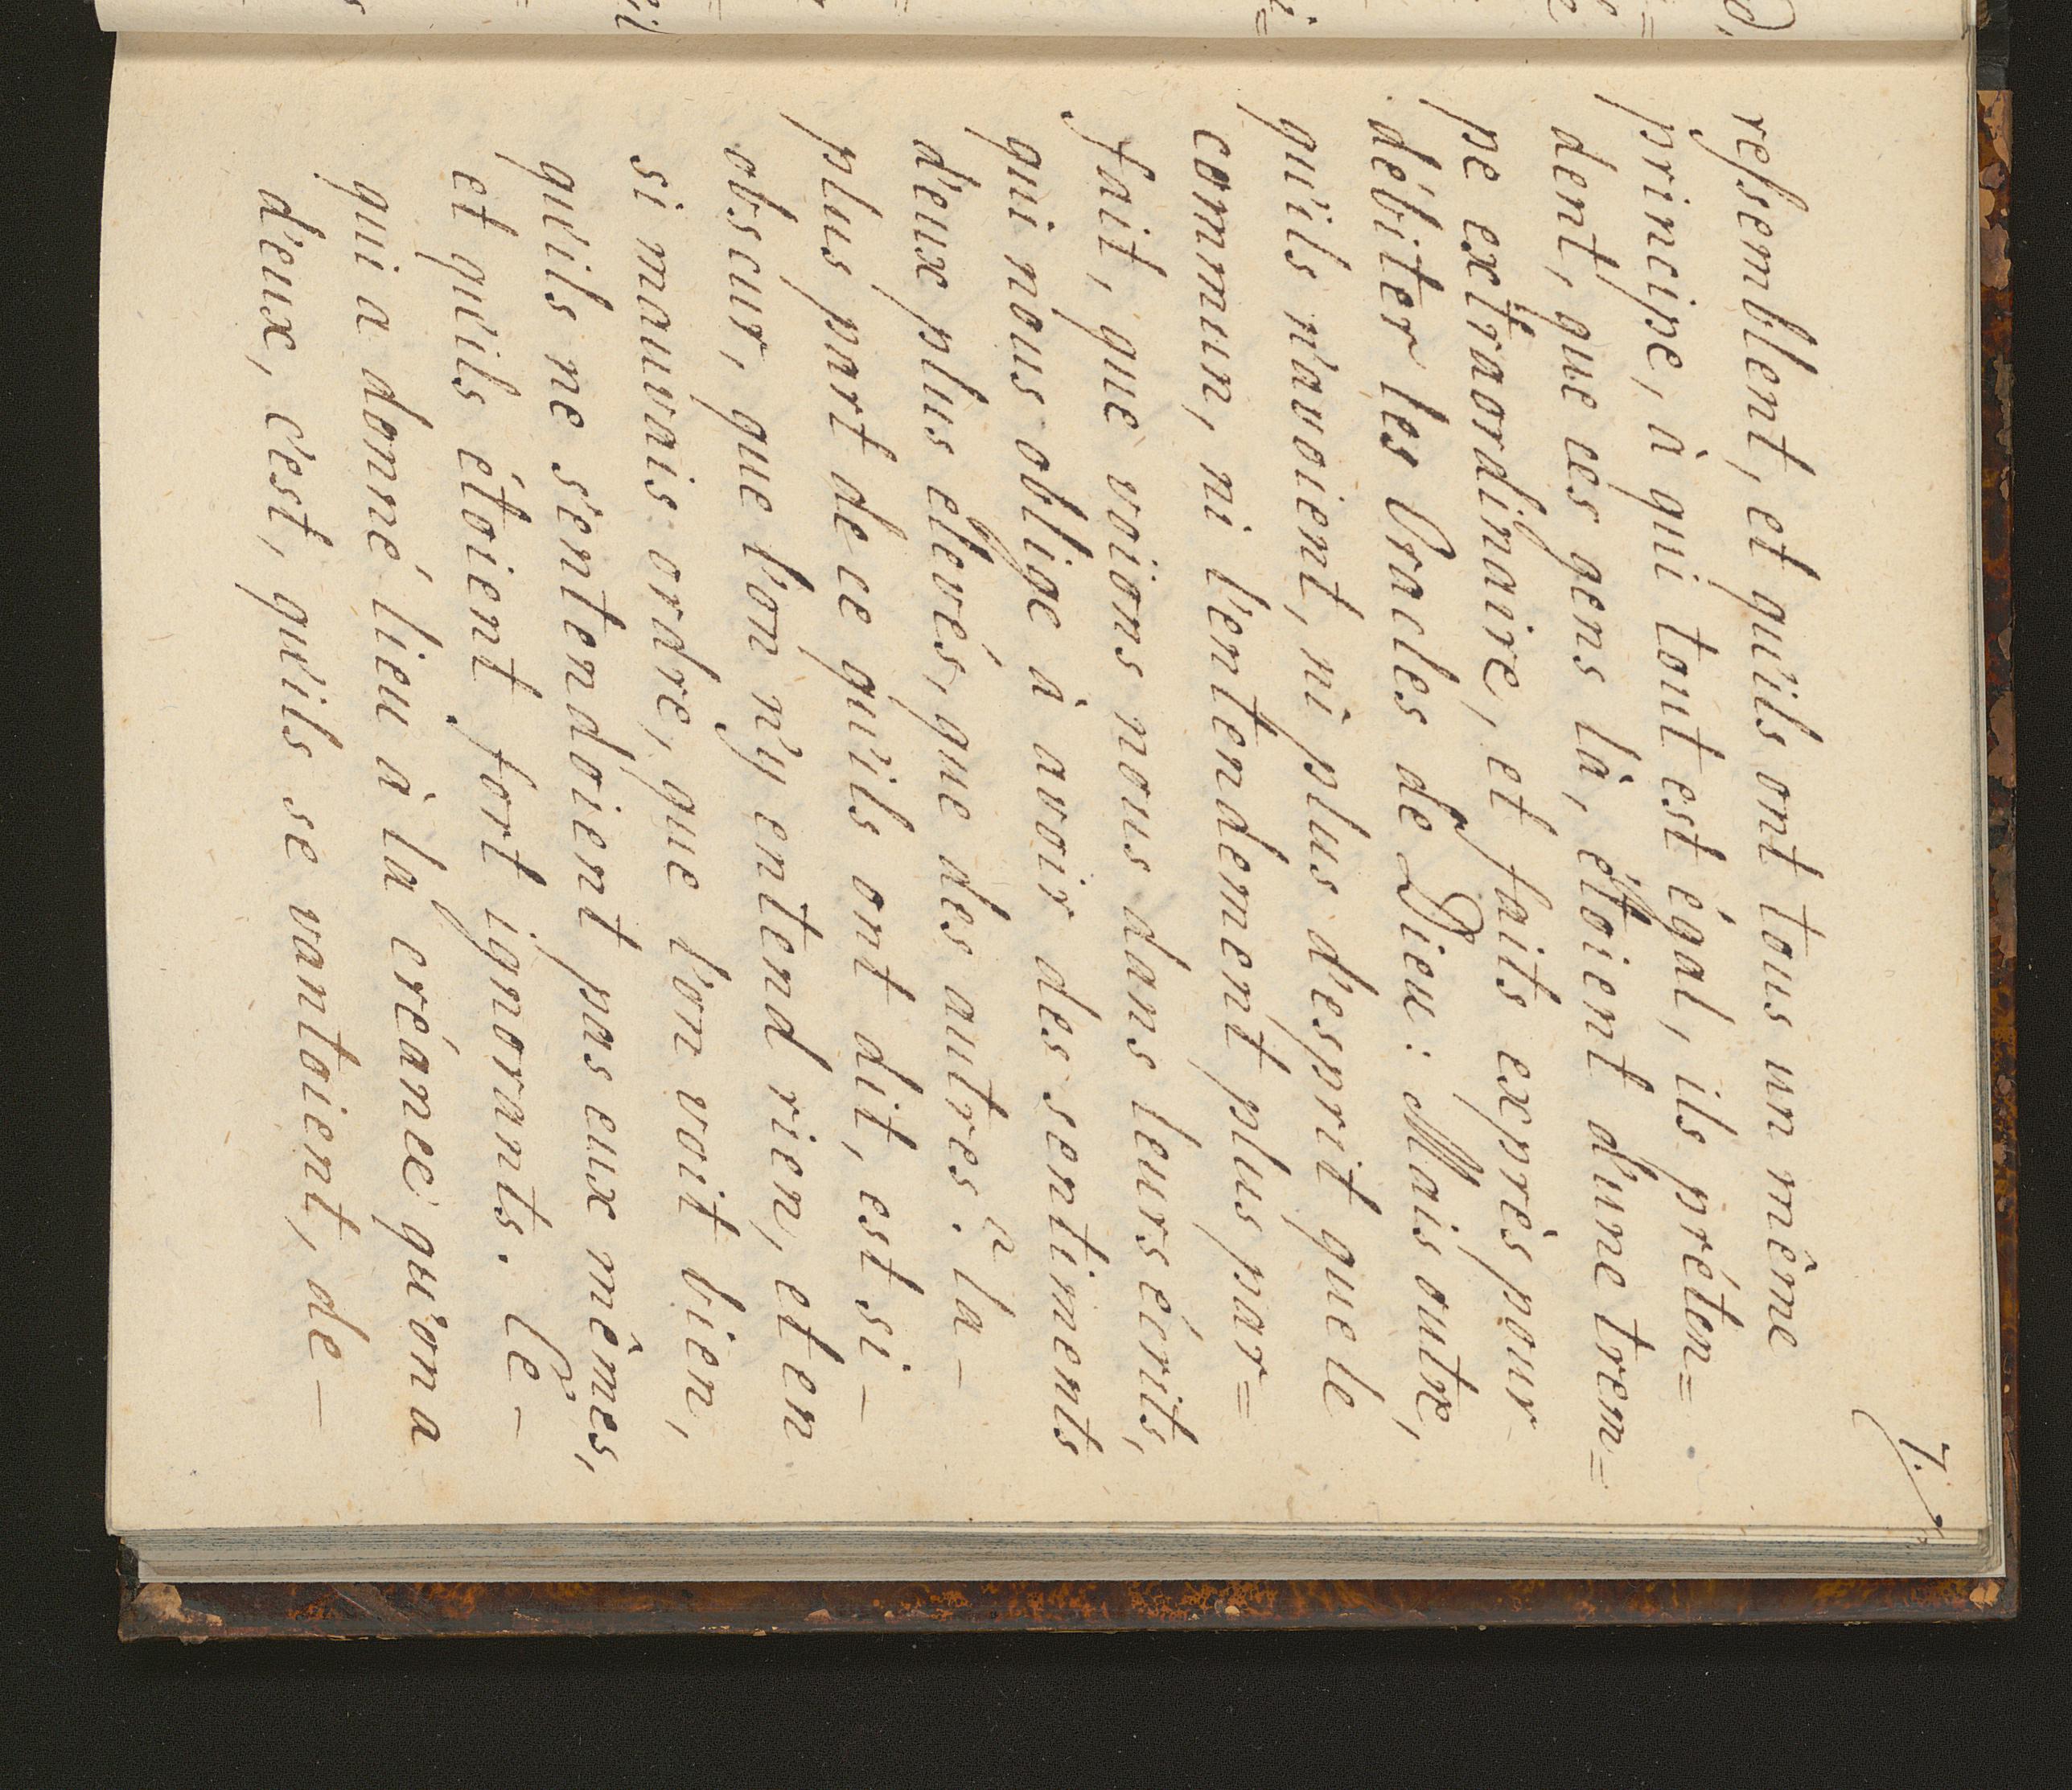 7.
ressemblent, et qu'ils ont tous un même
principe, à qui tout est égal, ils préten=
dent, que ces gens là, étoient d'une trem=
pe extraordinaire, et faits exprès pour
débiter les Oracles de Dieu: Mais outre,
qu'ils n'avoient, ni plus d'esprit que le
commun, ni l'entendement plus par=
fait, que voions nous dans leurs écrits,
qui nous oblige à avoir des sentiments
d'eux plus élevés, que des autres? la-
plus part de ce qu'ils ont dit, est si-
obscur, que l'on n'y entend rien, et en
si mauvais ordre, que l'on voit bien,
qu'ils ne s'entendoient pas eux mêmes,
et qu'ils étoient fort ignorants. Ce-
qui a donné lieu à la créance qu'on a
d'eux, c'est, qu'ils se vantoient, de-